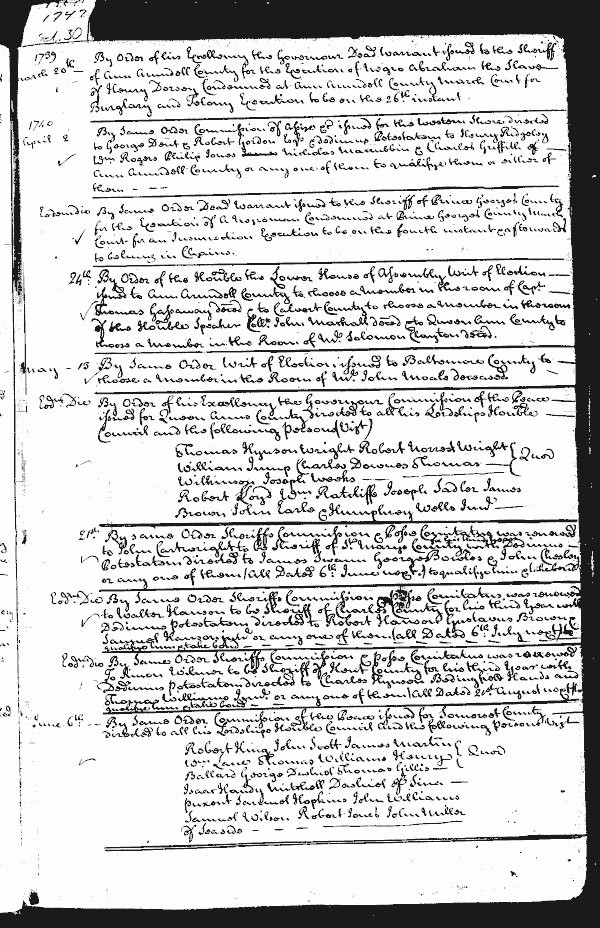 1742
1739
March 20th
By Order of his Excellency the Governour Dead Warrant issued to the Sheriff
of Ann Arundell County for the Execution of Negro Abraham the Slave
of Henry Dorsey Condemned at Ann Arundell County March Court for
Burglary and Felony Execution to be on the 26th instant
1740
April 2
By Same Order Commission of Assize &c issued for the Western Shore directed
to George Dent & Robert Gordon Esqrs & Dedimus Potestatem to Henry Ridgeley
Wm Rogers Philip Jones Nicholas Maccubbin & Charles Griffith of
Ann Arundell County or any one of them to qualifye them or either of
them - - -
Eodem die By Same Order Dead Warrant issued to the Sheriff of Prince Georges County
for the Execution of a Negroman Condemned at Prince Georges County March
Court for an Insurrection Execution to be on the fourth instant & afterwards
to be hung in Chains.
24th By Order of the Honble the Lower House of Assembly Writ of Election
issued to Ann Arundell County to choose a Member in the room of Capt
Thomas Gassaway deced & to Calvert County to choose a Member in the room
of the Honble Speaker Coll. John Mackall deced & to Queen Ann County to
choose a Member in the Room of Mr. Solomon Clayton deced.
May - 13 By Same Order Writ of Election issued to Baltimore County to
choose a Member in the Room of Mr. John Moale deceased
Eodm Die By Order of his Excellency the Governour Commission of the Peace
issued for Queen Anns County directed to all his Lordships Honble
Council and the following Persons (Vizt)
Thomas Hynson Wright Robert Norrest Wright
William Jump Charles Downes Thomas
Quor
Wilkinson Joseph Weeks
Robert Loyd Wm Ratcliffe Joseph Sadler James
Brown John Earle & Humphrey Wells Junr
21st By same Order Sheriffs Commission & Posse Comitatus was renewed
to John Cartwright to be Sheriff of St Marys County with Dedimus
Potestatem directed to James Swann George Bowles & John Chesley
or any one of them (all Dated 6th June next) to qualifie him
Eodm Die By Same Order Sheriffs Commission & Posse Comitatus was renewed
to Walter Hanson to be Sheriff of Charles County for his third Year with
Dedimus Potestatem directed to Robert Hanson Gustavus Brown &
Samuel Hanson or any one of them (all Dated 6th July next) to
Eodm die By Same Order Sheriffs Commission & Posse Comitatus was renewed
To Simon Wilmer to be Sheriff of Kent County for his third Year with
Dedimus Potestatem directed to Charles Hynson Bedingfield Hands and
Thomas Williams Junr or any one of them (all Dated 21st August next)
June 6th By Same Order Commission of the Peace issued for Somerset County
directed to all his Lordships Honble Council and the following Persons Vizt
Robert King John Scott James Martin
Wm Lane Thomas Williams Henry
Quor
Ballard George Dashiel Thomas Gillis
Isaac Handy Mitchell Dashiel
Samuel Hopkins John Williams
Samuel Wilson Robert Jones John Miller
of Seaside - - -